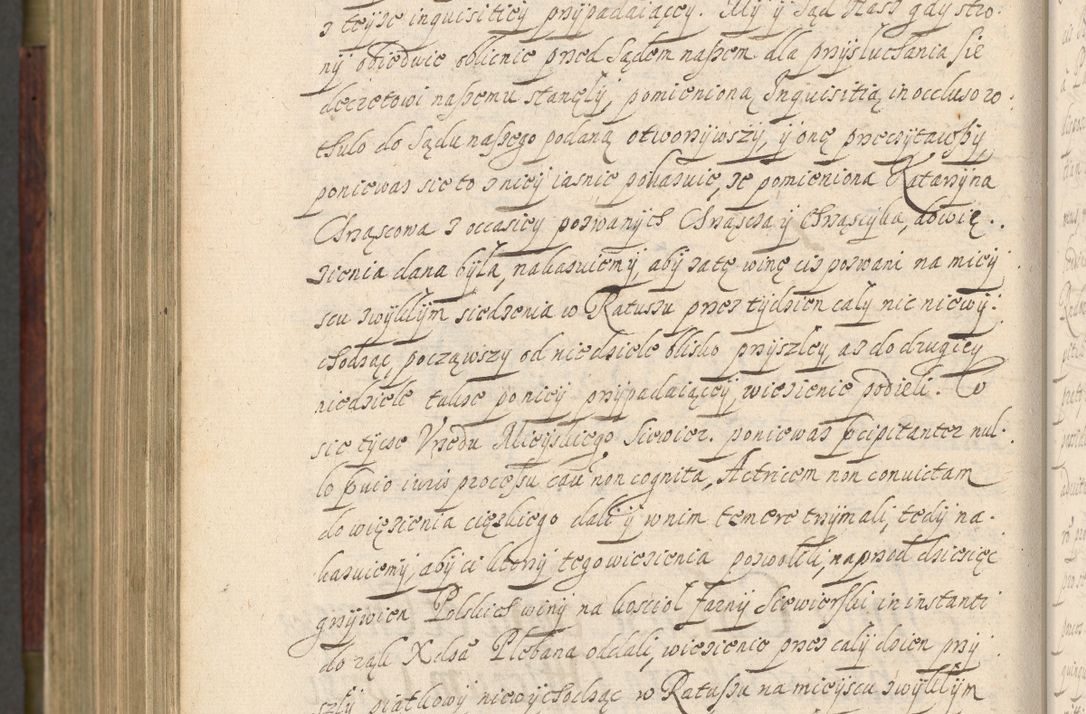 z teyże inquisitiey przypadaiącey. My y Sąd Nasz gdy stro:
ny obiedwie oblicnie przed Sądem naszem dla przysłuchania się
decretowi naszemu stanęły, pomienioną Inquisitią in occluso ro:
tulo do Sądu naszego podaną otworzywszy, y onę przeczytawszy,
poniewasz się to z niey iasnie pokazuie, że pomieniona Katarzyna
Chrząscowa z occasiey pozwanych Chrząscza y Chrząscyka, do wię.
zienia dana była, nakazuiemy, aby za tę winę ciż pozwani na miey
scu zwykłym siedzenia w Ratuszu przez tydzien cały nic nie wy:
chodząc, począwszy od niedziele blisko przyszłey, aż do drugiey
niedziele także po niey przypadaiącey, wiezienie podieli. Co
się tycze Urzędu Mieyskiego Siewier. poniewasz pcipitanter nul.
lo pvio iuris processu caũ non cognita, Actricem non convictam
do więzienia cięszkiego dali y w nim temere trzymali, tedy na.
kazuiemy, aby ci ktorzy tego wiezienia pozwolili, naprzod dziesięć
grzywien Polskich winy na koscioł Farny Siewierski in instanti
do rąk Xdza Plebana oddali, wiezienie przez cały dzien przy
szły piątkowy nie wychodząc w Ratuszu na mieyscu zwykłym